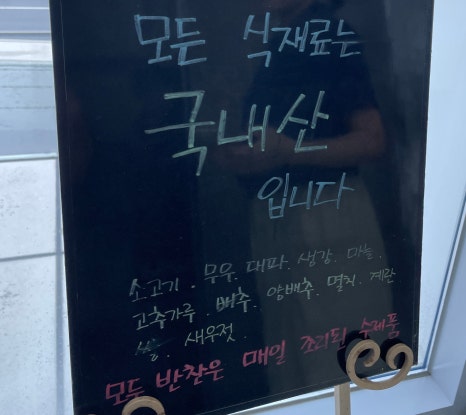 모든 식재료는
국내산
입니다
소고기. 무우. 대파. 생강. 마늘.
고추가루. 배추. 양배추. 멸치. 계란
쌀. 새우젓.
모두 반찬은 매일 조리된 수제품